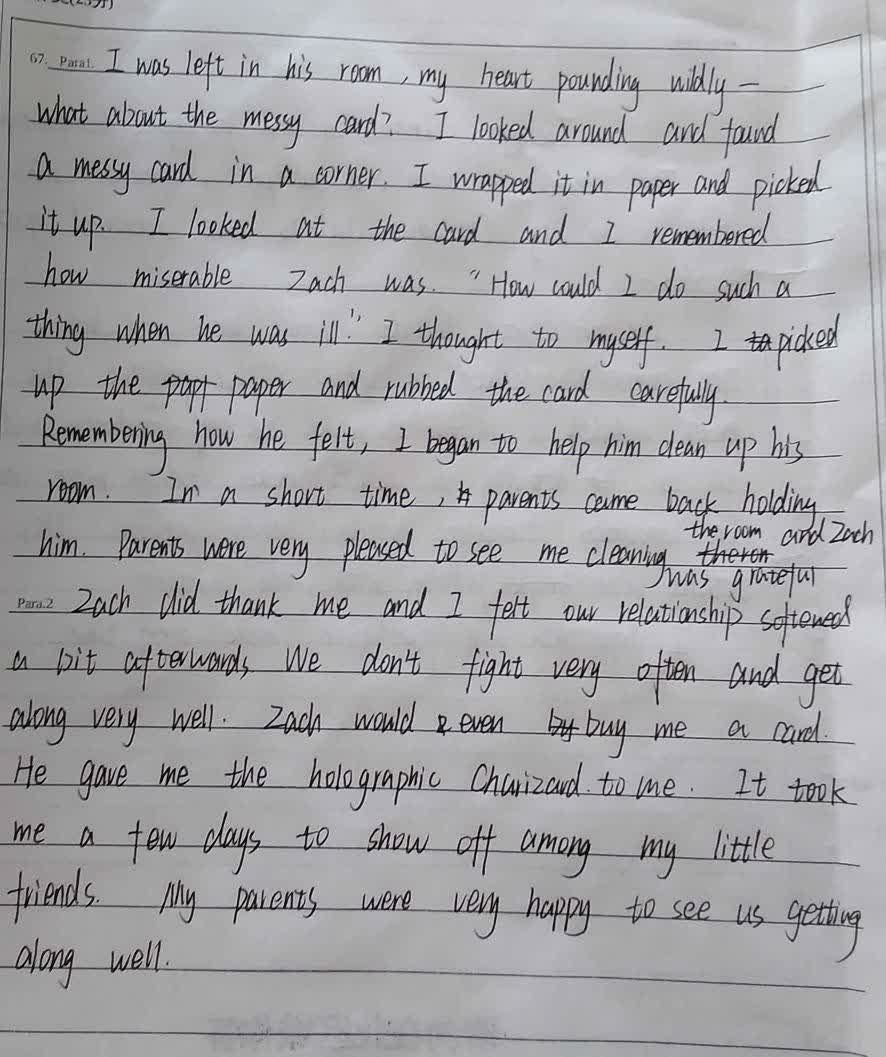 67. Para1. I was left in his room, my heart pounding wildly —
what about the messy card? I looked around and found
a messy card in a corner. I wrapped it in paper and picked
it up. I looked at the card and I remembered
how miserable Zach was. "How could I do such a
thing when he was ill." I thought to myself. I to picked
up the papt paper and rubbed the card carefully.
Remembering how he felt, I began to help him clean up his
room. In a short time, parents came back holding
him. Parents were very pleased to see me cleaning the room and Zach
was grateful
Para.2 Zach did thank me and I felt our relationship softened
a bit afterwards We don't fight very often and get
along very well. Zach would even by buy me a card.
He gave me the holographic Charizard. to me. It took
me a few days to show off among my little
friends. My parents were very happy to see us getting
along well.